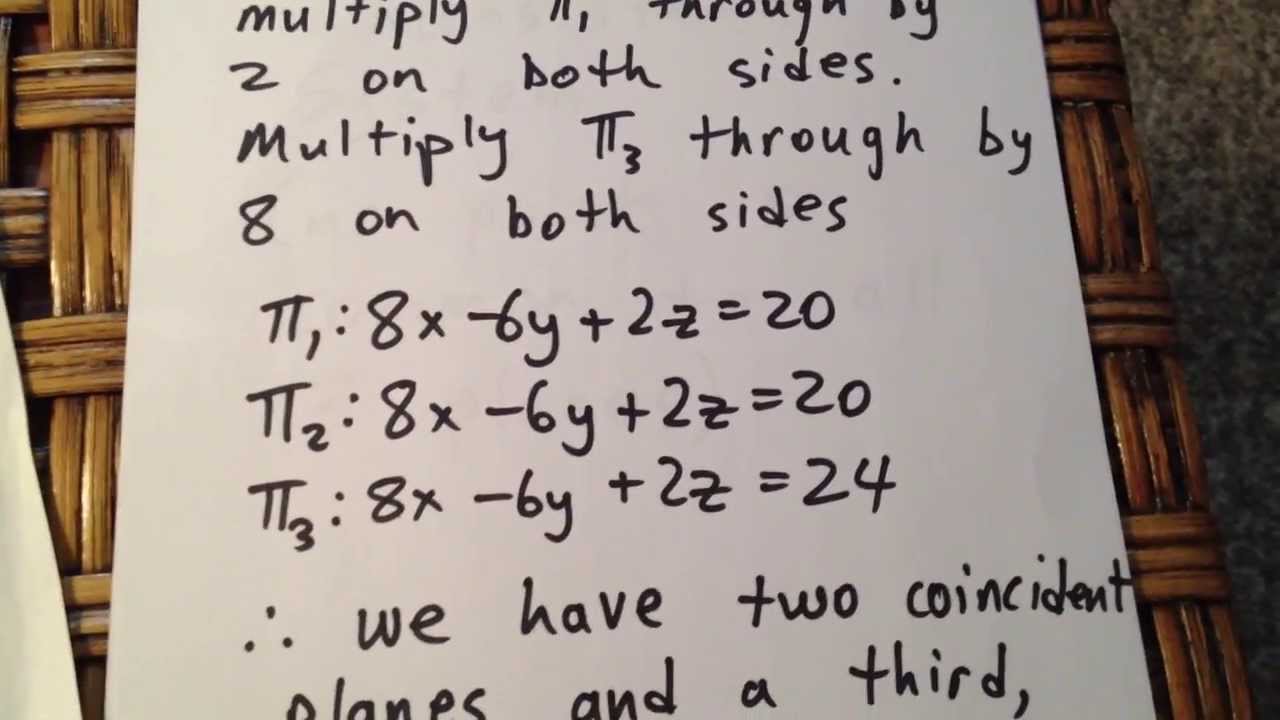 multiply π₁ through by
2 on both sides.
Multiply π₃ through by
8 on both sides
π₁: 8x -6y + 2z = 20
π₂: 8x -6y + 2z = 20
π₃: 8x -6y + 2z = 24
∴ we have two coincident
planes and a third,